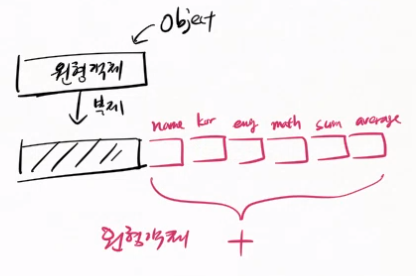 Object
원형객체
복제
name kor eng math sum average
원형객체 +